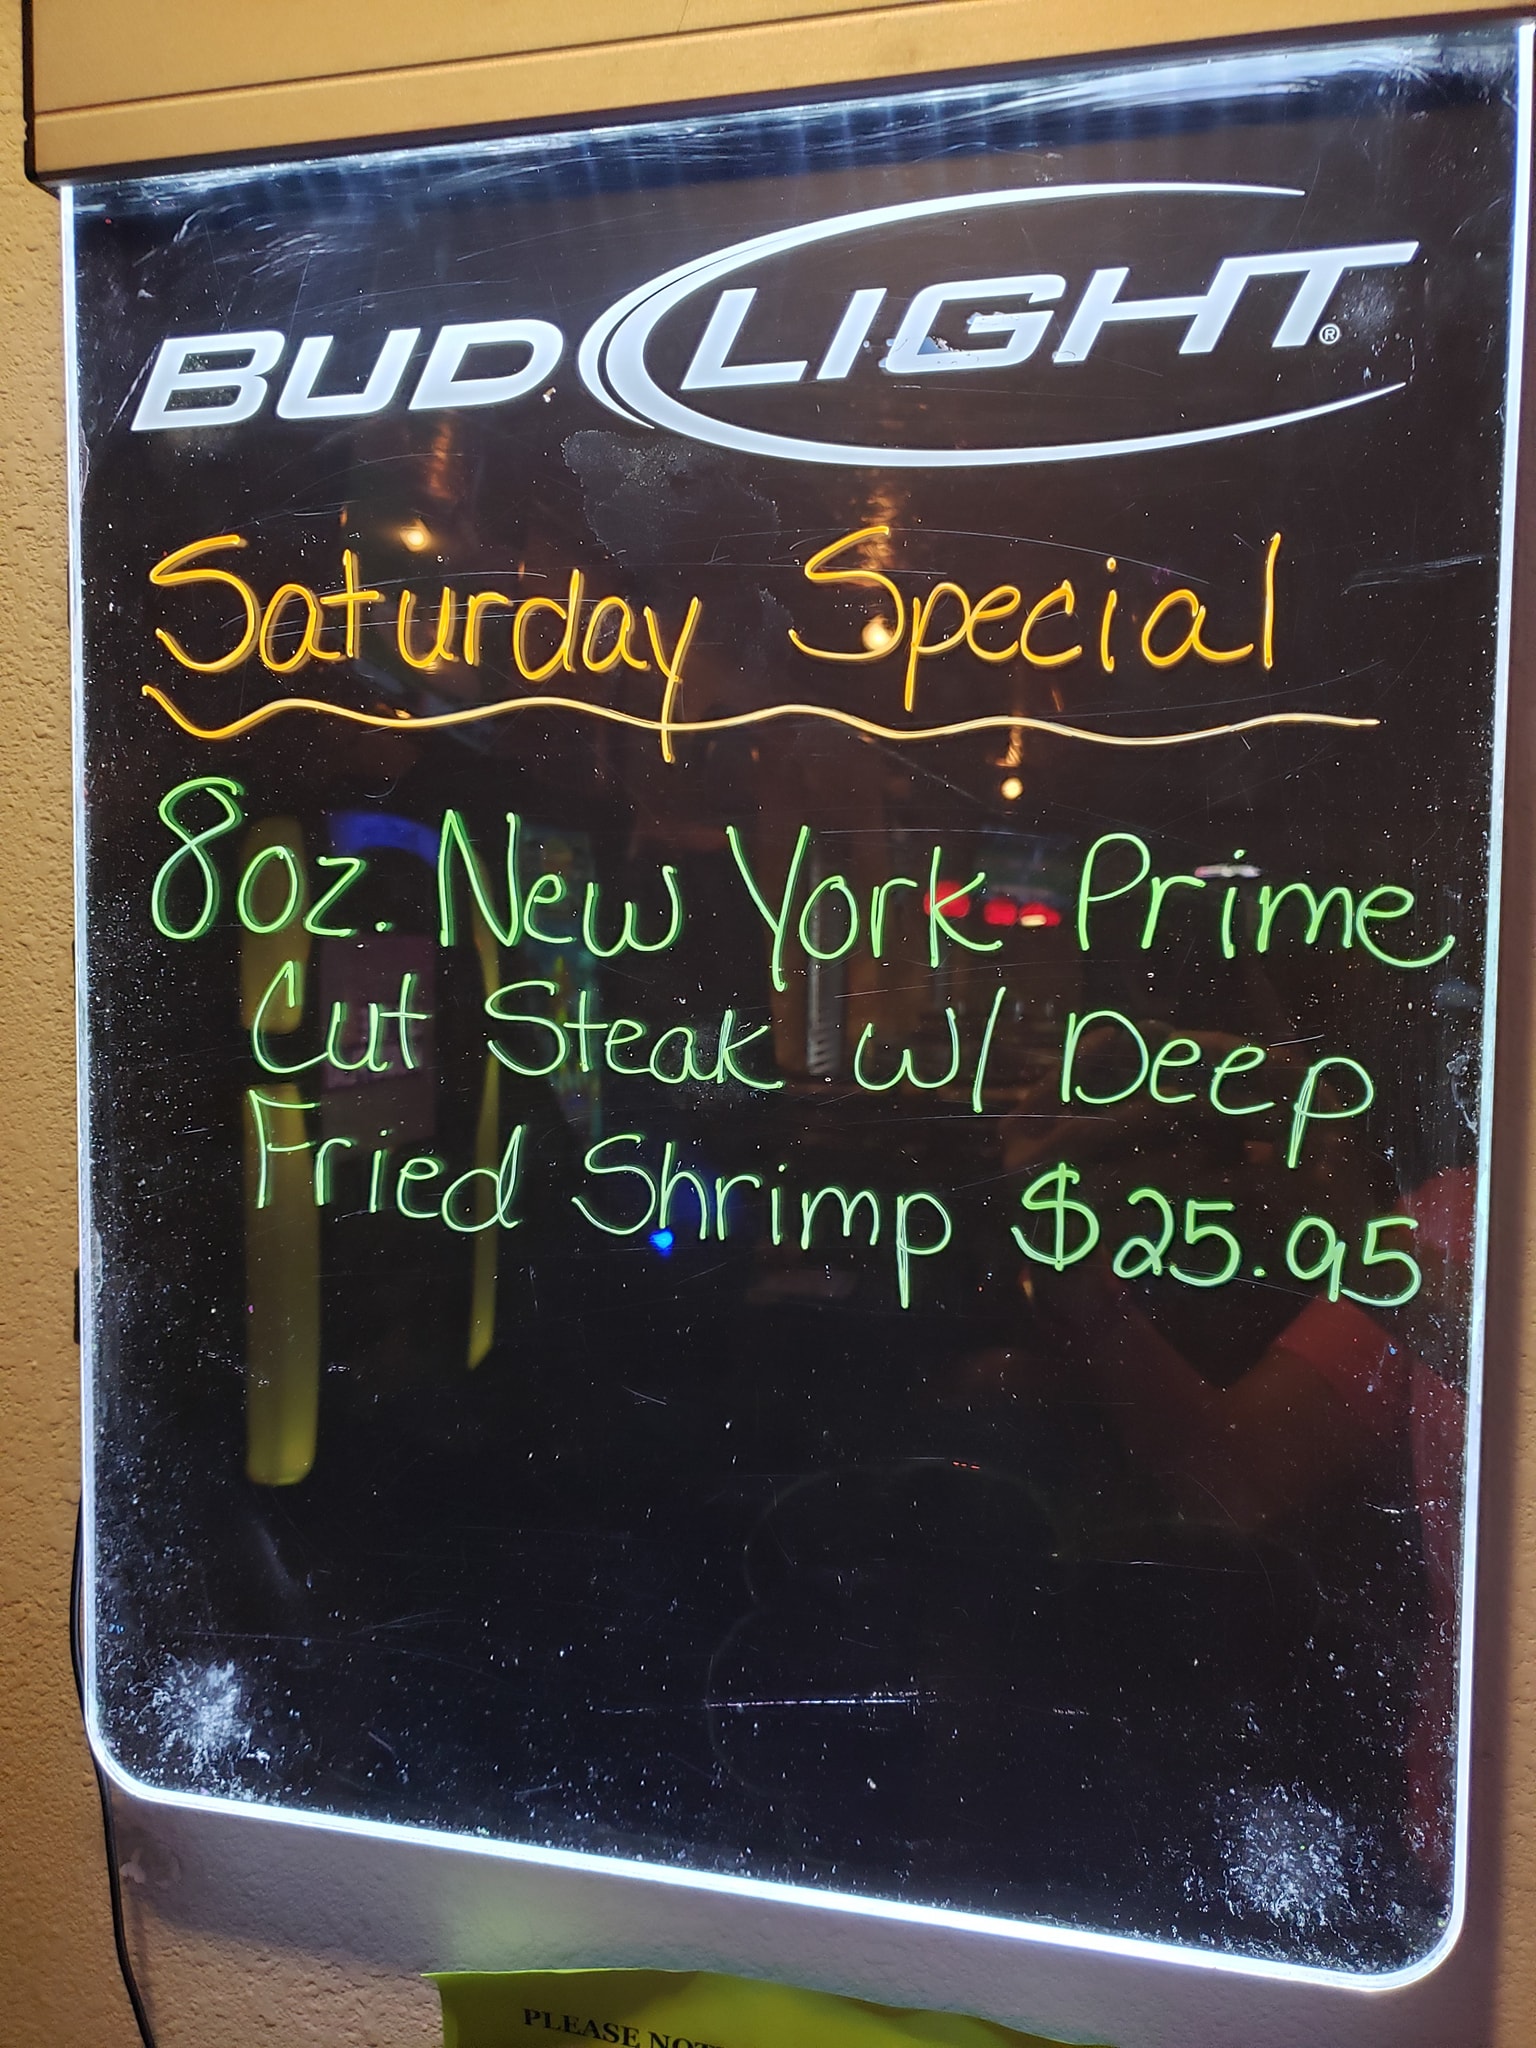 BUD LIGHT®
Saturday Special
8oz. New York Prime
Cut Steak w/ Deep
Fried Shrimp $25.95
PLEASE NOT